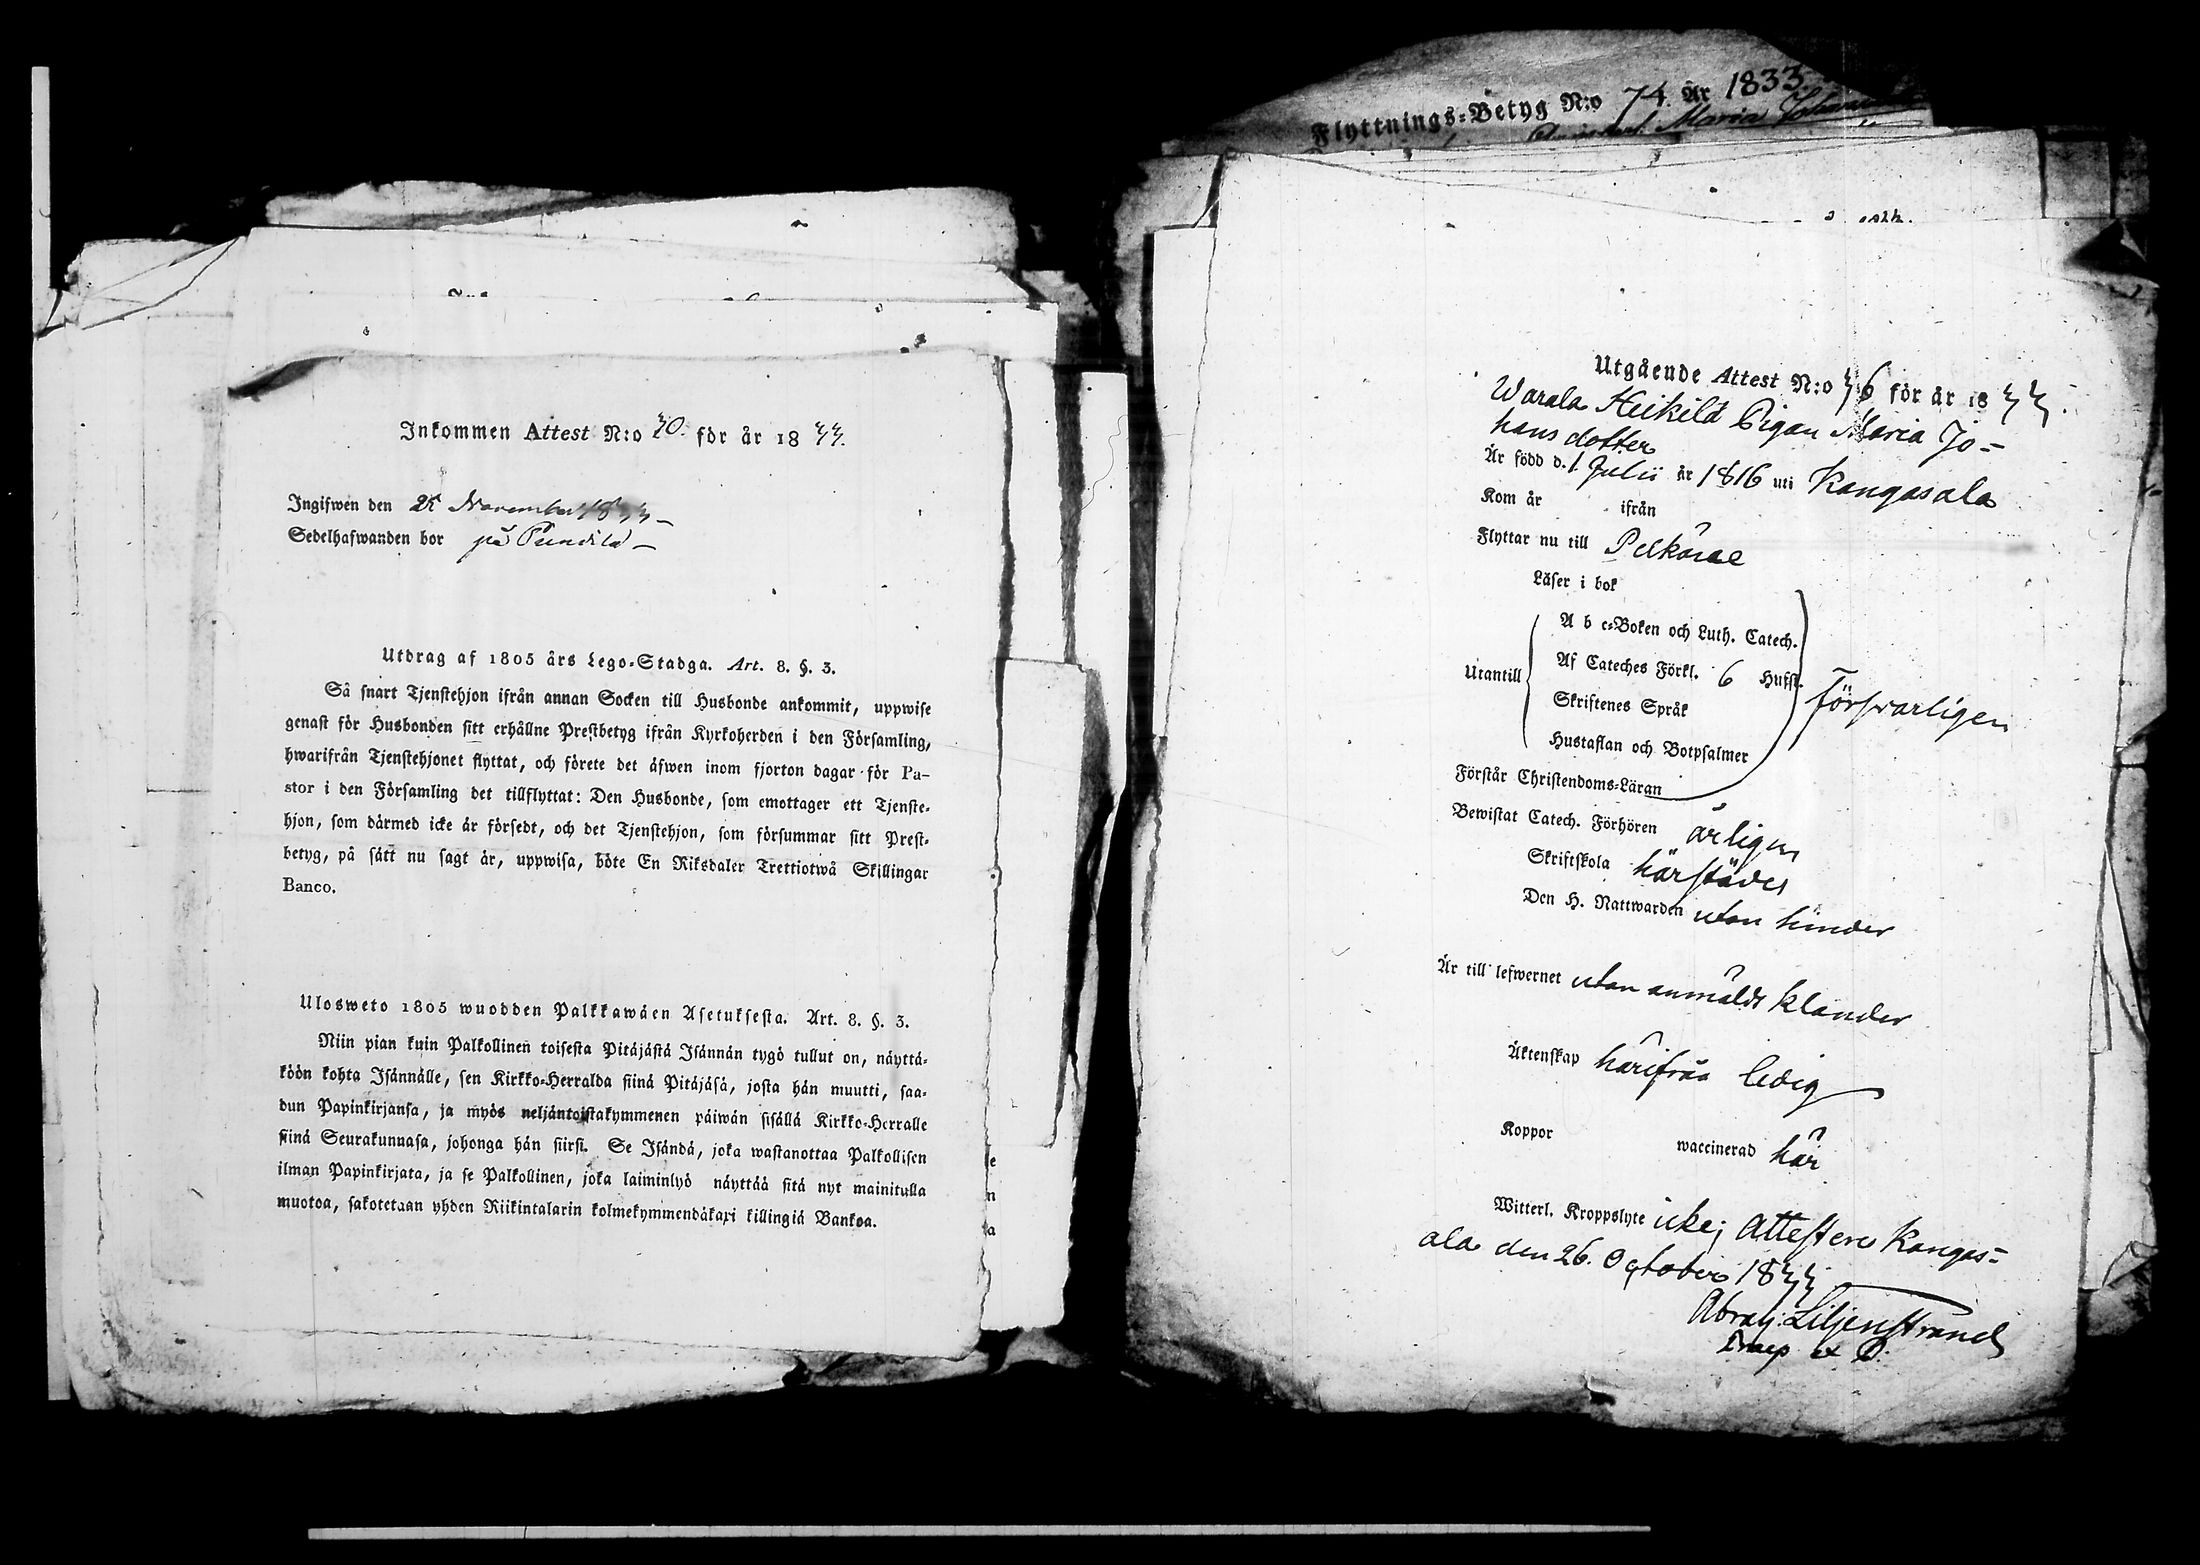 Inkommen Attest N:o 30. för år 1833.
Ingifwen den 25 November 1833
Sedelhafwanden bor på
Utdrag af 1805 års Lego-Stadga. Art. 8. §. 3.
Så snart Tjenstehjon ifrån annan Socken till Husbonde ankommit, uppwise
genast för Husbonden sitt erhållne Prestbetyg ifrån Kyrkoherden i den Församling,
hwarifrån Tjenstehjonet flyttat, och förete det äfwen inom fjorton dagar för Pa-
stor i den Församling det tillflyttat: Den Husbonde, som emottager ett Tjenste-
hjon, som därmed icke är försedt, och det Tjenstehjon, som försummar sitt Prest-
betyg, på sätt nu sagt är, uppwisa, böte En Riksdaler Trettiotwå Skillingar
Banco.
Ulosweto 1805 wuodden Palkkawäen Asetuksesta. Art. 8. §. 3.
Niin pian kuin Palkollinen toisesta Pitäjästä Isännän tygö tullut on, näyttä-
köön kohta Isännälle, sen Kirkko-Herralda siinä Pitäjäsä, josta hän muutti, saa-
dun Papinkirjansa, ja myös neljäntoistakymmenen päiwän sisällä Kirkko-Herralle
siinä Seurakunnasa, johonga hän siirsi. Se Isändä, joka wastanottaa Palkollisen
ilman Papinkirjata, ja se Palkollinen, joka laiminlyö näyttää sitä nyt mainitulla
muotoa, sakotetaan yhden Riikintalarin kolmekymmendäkaxi killingiä Bankoa.
Flyttnings-Betyg N:o 74. År 1833.
Maria
Utgående Attest N:o 36 för år 1833.
Warala Heikilä Pigan Maria Jo-
hans dotter
Är född d. 1 Julii år 1816 uti Kangasala
Kom år ifrån
Flyttar nu till Pelkäne
Läser i bok
A b c-Boken och Luth. Catech.
Utantill Af Cateches Förkl. 6 Hufst. försvarligen
Skriftenes Språk
Hustaflan och Botpsalmer
Förstår Christendoms-Läran
Bewistat Catech. Förhören årligen
Skriftskola härstädes
Den H. Nattwarden utan hinder
Är till lefwernet utan anmäldt klander
Äktenskap härifrån ledig
Koppor waccinerad här
Witterl. Kroppslyte icke; Attesterer Kangas-
ala den 26. October 1833
Abrah: Liljenstrand